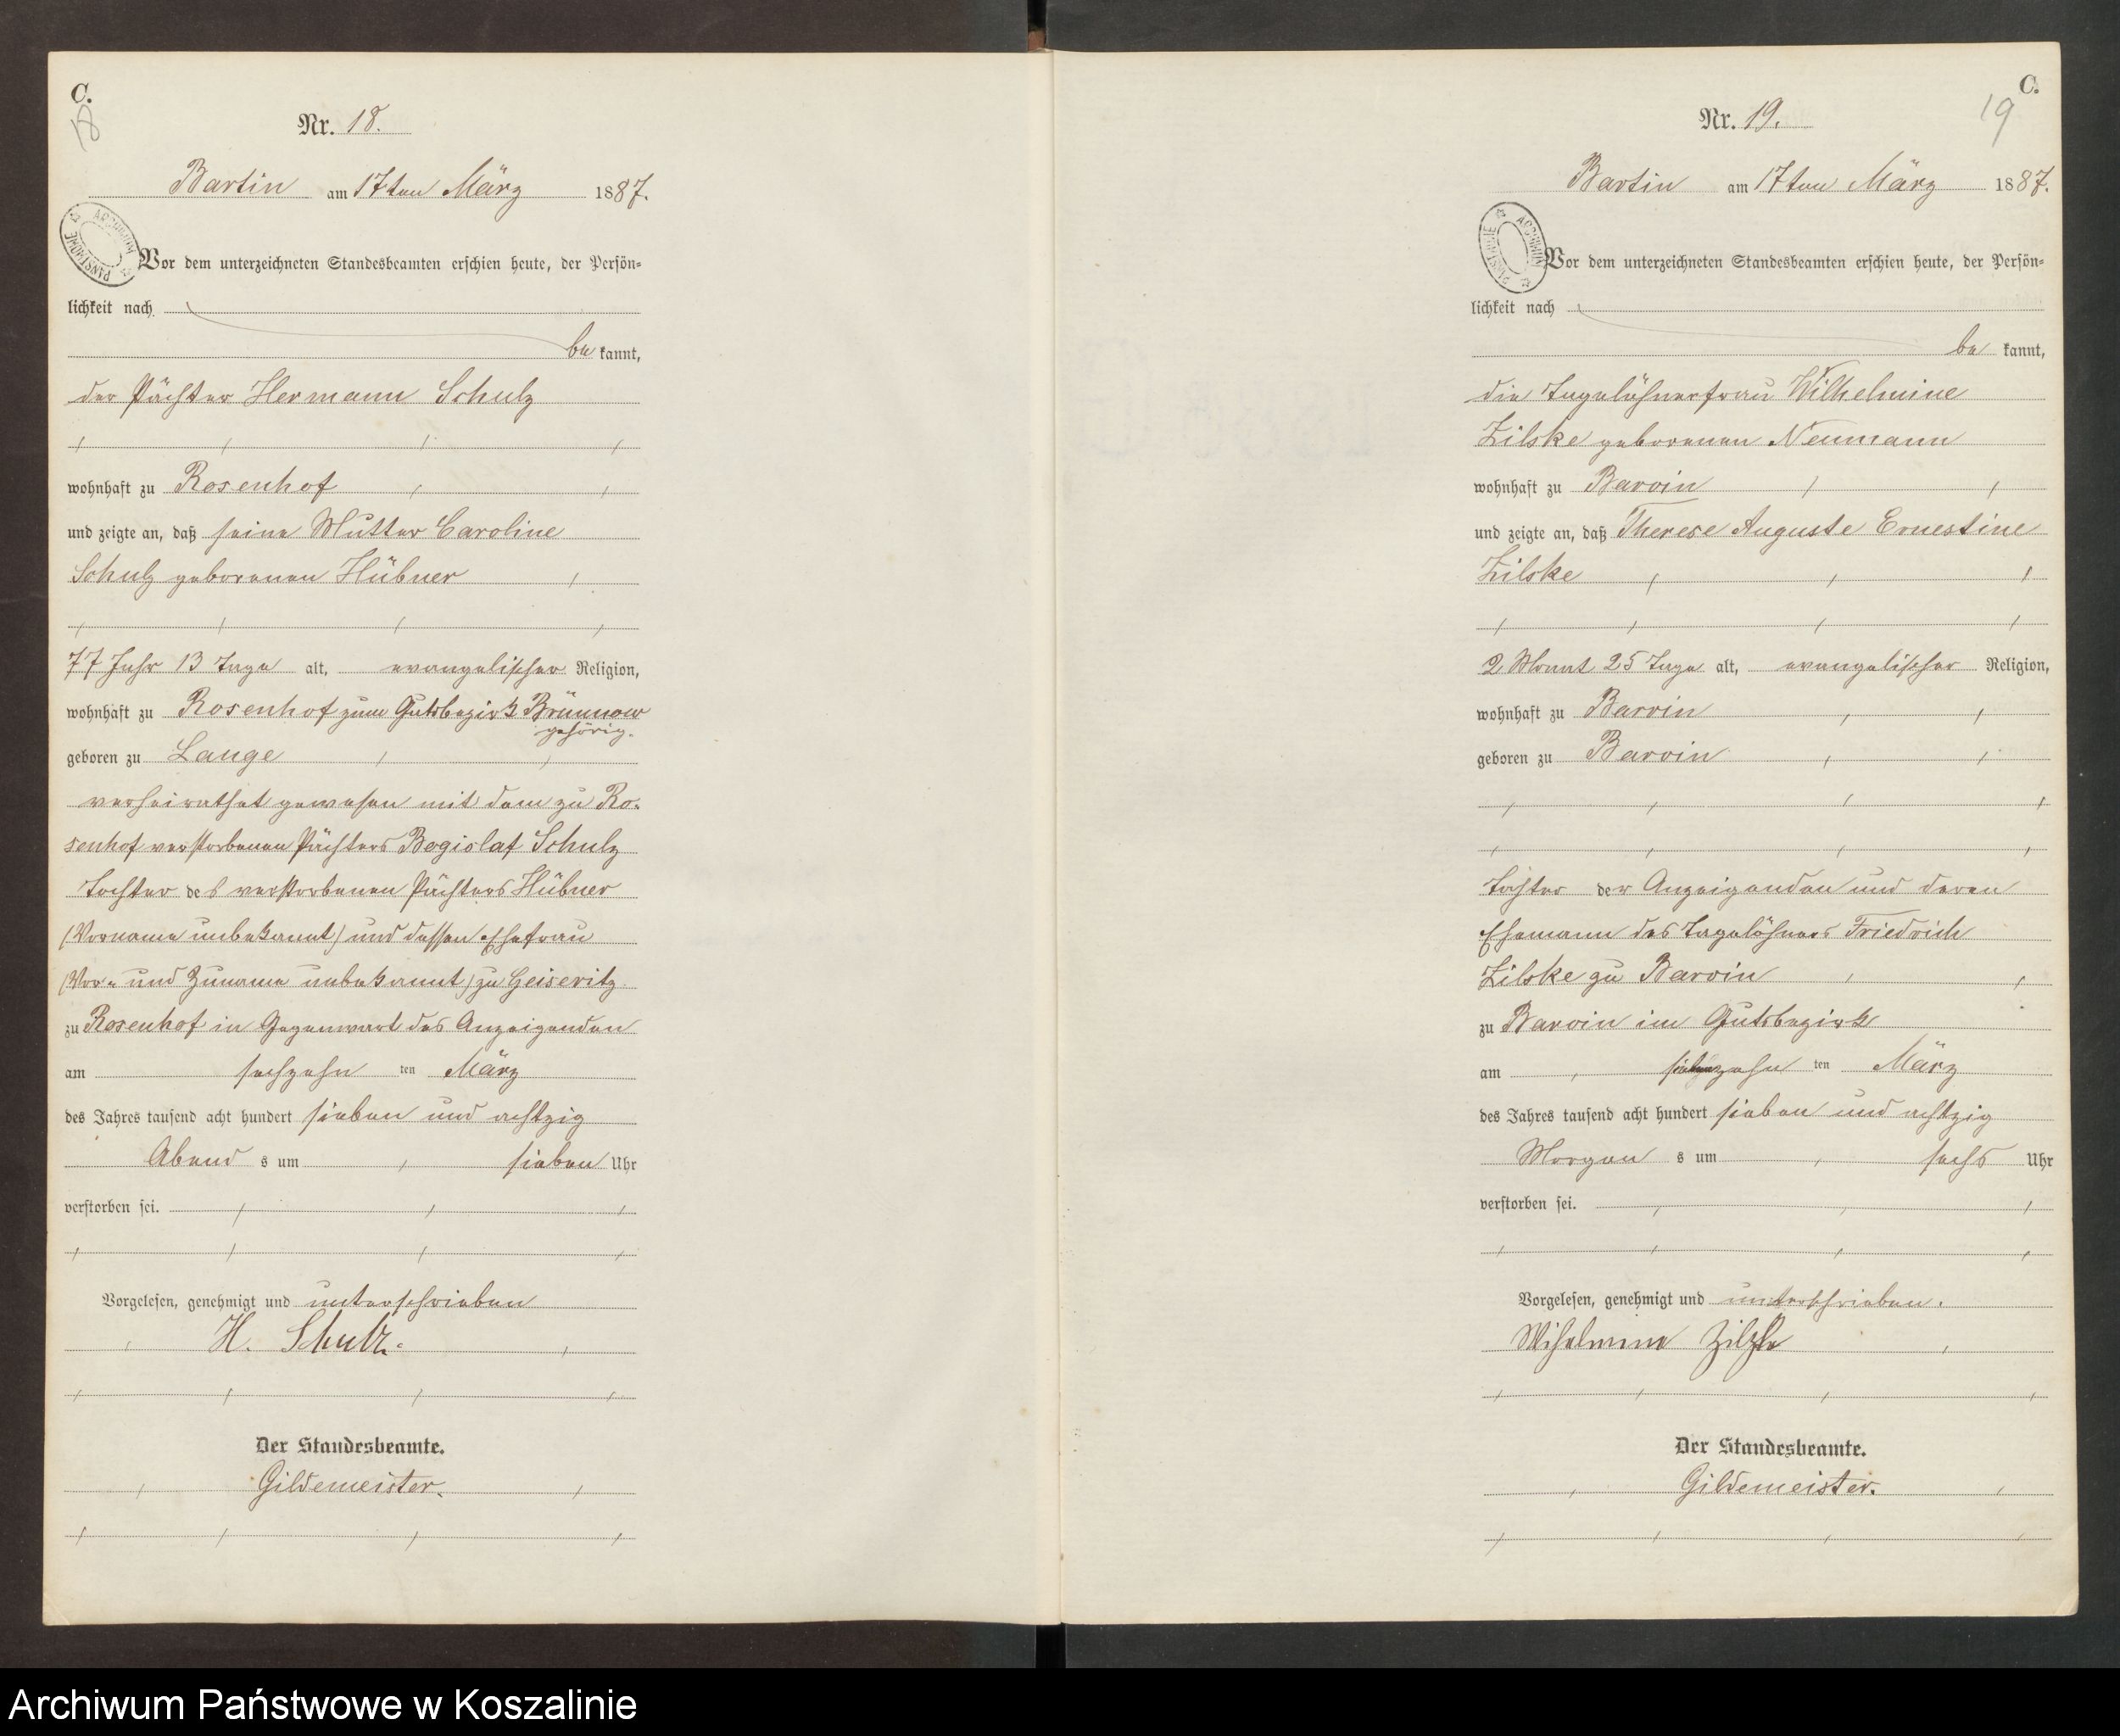 C.
18
Nr. 18.
Bartin am 17ten März 1887.
ARCHIWUM PAŃSTWOWE
Vor dem unterzeichneten Standesbeamten erschien heute, der Persön-
lichkeit nach
be kannt,
der Pächter Hermann Schulz
wohnhaft zu Rosenhof
und zeigte an, daß seine Mutter Caroline
Schulz geborenen Hübner
77 Jahr 13 Tage alt, evangelischer Religion,
wohnhaft zu Rosenhof zum Gutsbezirk Brünnow
gehörig.
geboren zu Lange
verheirathet gewesen mit dem zu Ro-
senhof verstorbenen Pächters Bogislaf Schulz
Tochter des verstorbenen Pächters Hübner
(Vorname unbekannt) und dessen Ehefrau
(Vor- und Zuname unbekannt) zu Geiseritz
zu Rosenhof in Gegenwart des Anzeigenden
am sechzehn ten März
des Jahres tausend acht hundert sieben und achtzig
Abend s um sieben Uhr
verstorben sei.
Vorgelesen, genehmigt und unterschrieben
H. Schulz.
Der Standesbeamte.
Gildemeister.
C.
19
Nr. 19.
Bartin am 17ten März 1887.
ARCHIWUM PAŃSTWOWE
Vor dem unterzeichneten Standesbeamten erschien heute, der Persön-
lichkeit nach
be kannt,
die Tagelöhnerfrau Wilhelmine
Zilske geborenen Neumann
wohnhaft zu Barvin
und zeigte an, daß Therese Auguste Ernestine
Zilske
2 Monat 25 Tage alt, evangelischer Religion,
wohnhaft zu Barvin
geboren zu Barvin
Tochter der Anzeigenden und deren
Ehemann des Tagelöhners Friedrich
Zilske zu Barvin
zu Barvin im Gutsbezirk
am siebenzehn ten März
des Jahres tausend acht hundert sieben und achtzig
Morgen s um sechs Uhr
verstorben sei.
Vorgelesen, genehmigt und unterschrieben.
Wihelmine Zilzke
Der Standesbeamte.
Gildemeister.
Archiwum Państwowe w Koszalinie